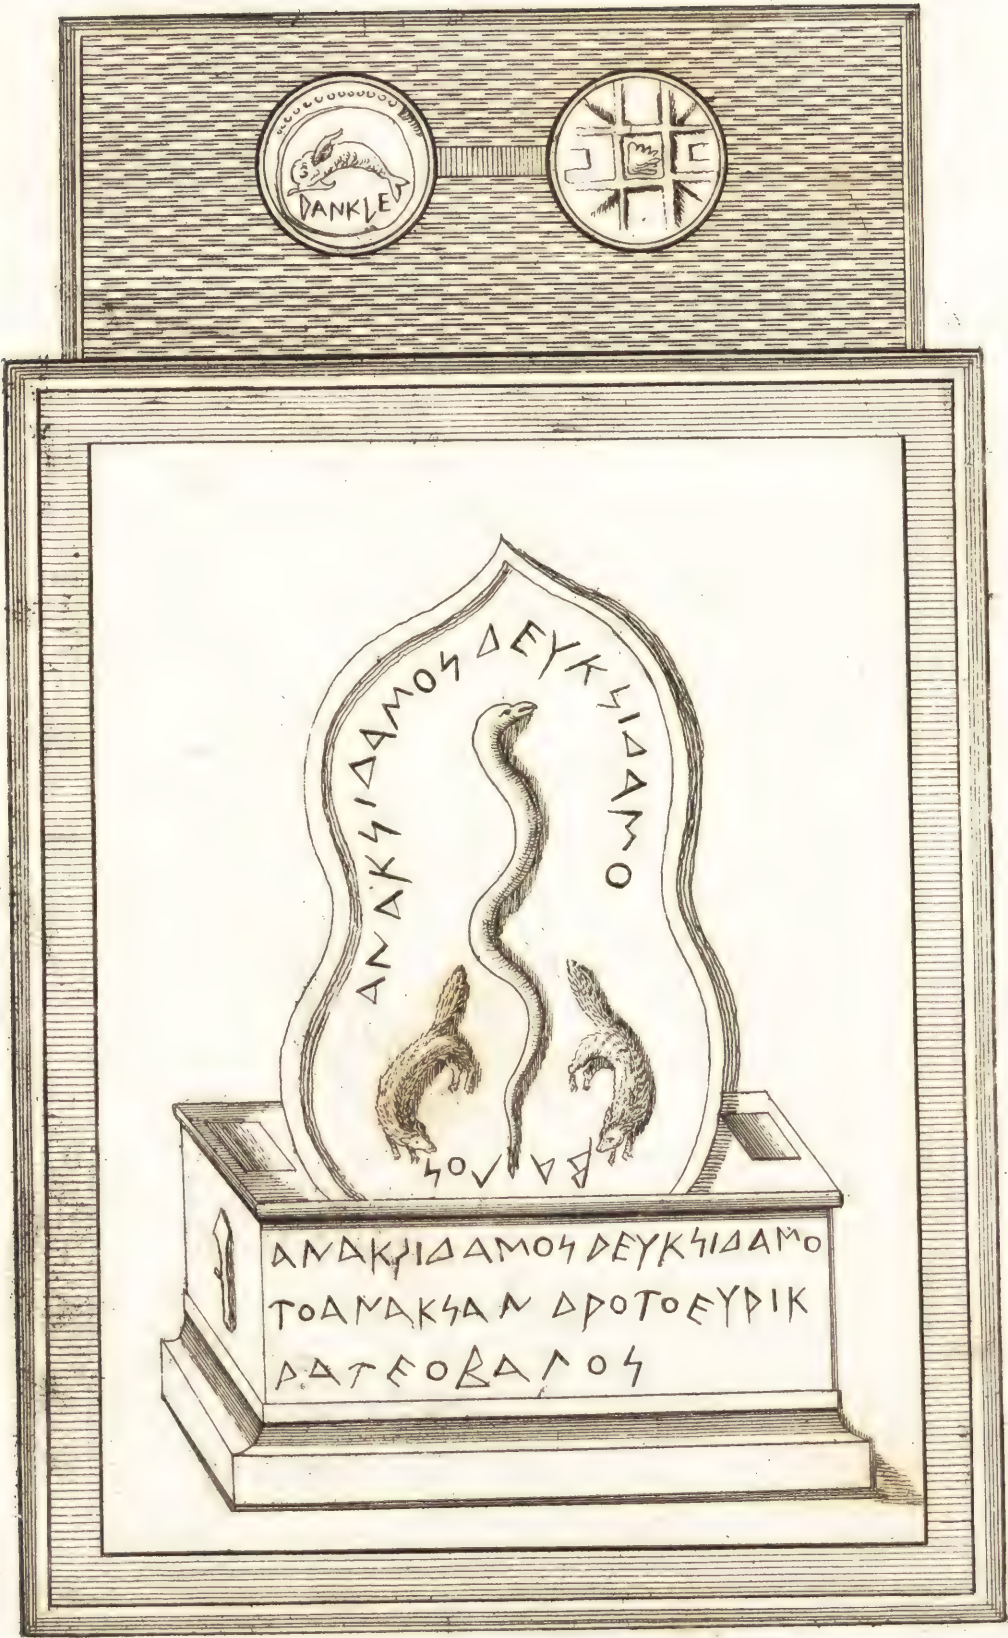 DANKLE
ΑΝΑΚΣΙΔΑΜΟΣ ΔΕΥΚΣΙΔΑΜΟ
ΒΑΓΟΣ
ΑΝΑΚΣΙΔΑΜΟΣ ΔΕΥΚΣΙΔΑΜΟ
ΤΟΑΝΑΚΣΑΝ ΔΡΟΤΟΕΥΡΙΚ
ΡΑΤΕΟΒΑΓΟΣ